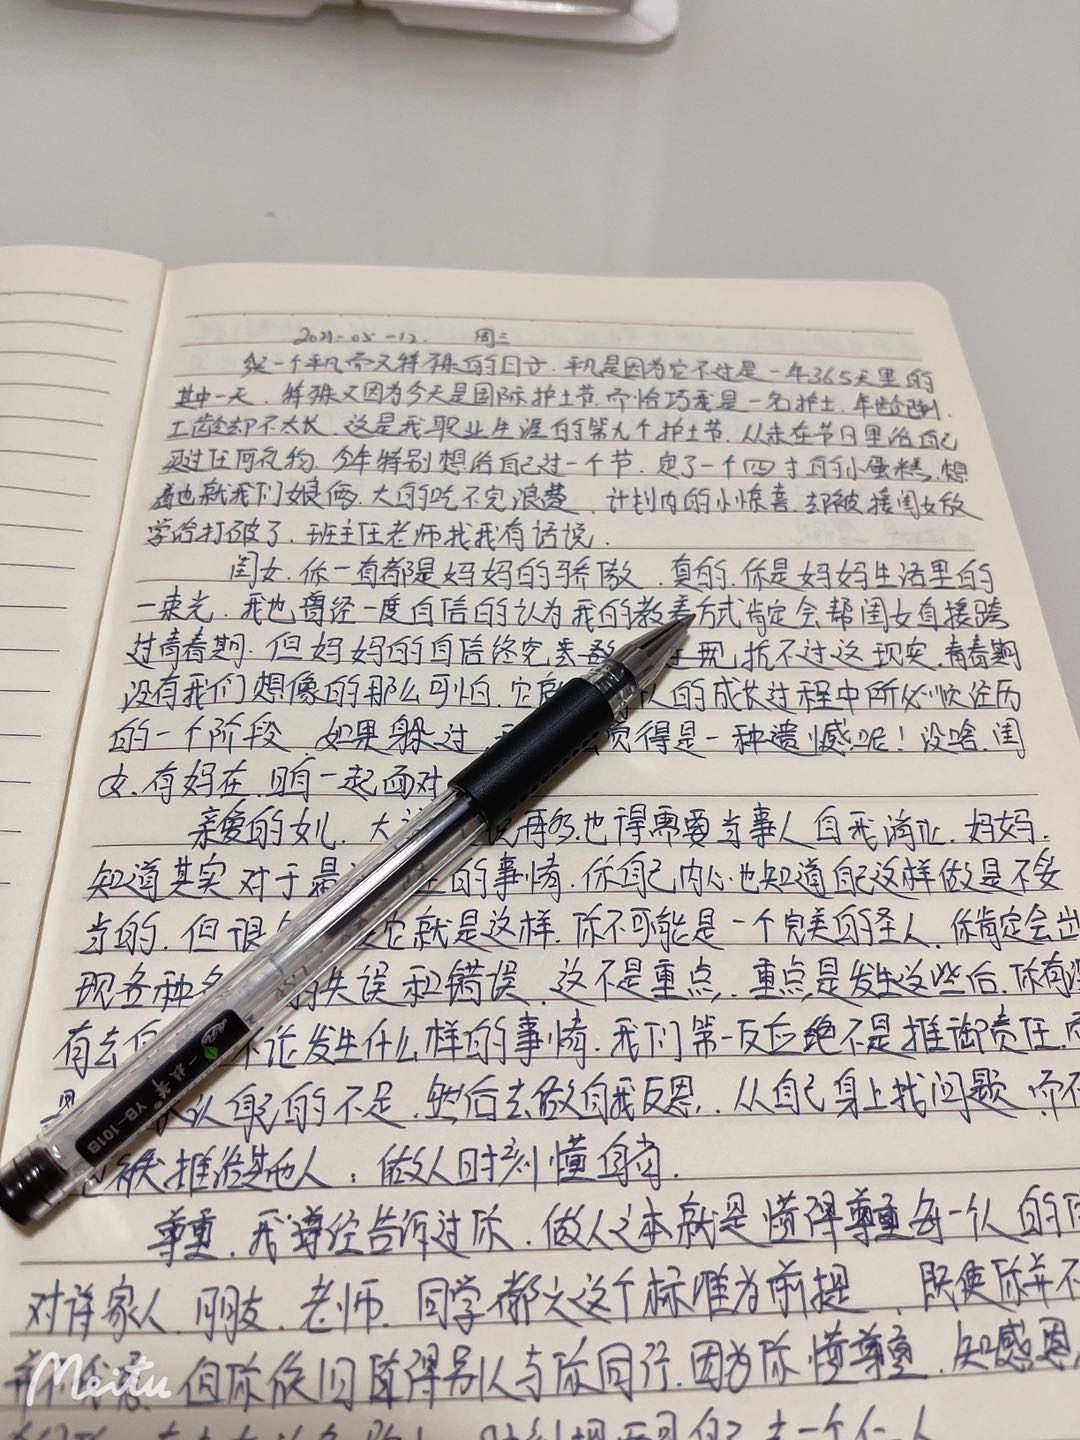 2021-05-12. 周三
一个平凡而又特殊的日子.平凡是因为它不过是一年365天里的
其中一天.特殊又因为今天是国际护士节.而恰巧我是一名护士.年龄
工龄却不太长.这是我职业生涯的第九个护士节.从未在节日里给自己
买过任何礼物.今年特别想给自己过一个节.定了一个四寸的小蛋糕.想
着也就我们娘俩.大的吃不完浪费.计划内的小惊喜.却被接闺女放
学给打破了.班主任老师找我有话说.
闺女.你一直都是妈妈的骄傲.真的.你是妈妈生活里的
一束光.我也曾经一度自信的认为我的教养方式肯定会帮闺女直接跨
过青春期.但妈妈的自信终究 现 抵不过这现实.青春期
没有我们想像的那么可怕.它 人的成长过程中所必须经历
的一个阶段.如果躲过. 觉得是一种遗憾呢!没啥.闺
女.有妈在.咱一起面对
亲爱的女儿.大 再多也得需要当事人自我消化.妈妈.
知道其实对于最 的事情.你自己内心也知道自己这样做是不妥
当的.但很 它就是这样.你不可能是一个完美的圣人.你肯定会出
现各种各 的失误和错误.这不是重点.重点是发生这些后.你有没
有去 不论发生什么样的事情.我们第一反应绝不是推卸责任.而
是 认自己的不足.然后去做自我反思.从自己身上找问题.而不
推给其他人;做人时刻懂自省.
尊重.我尊经告诉过你.做人之本就是懂得尊重每一个人的
对待家人.朋友.老师.同学都以这个标准为前提.既使你并不
但你依旧值得别人与你同行.因为你懂尊重.知感恩
一个人
Meitu
YB-101B